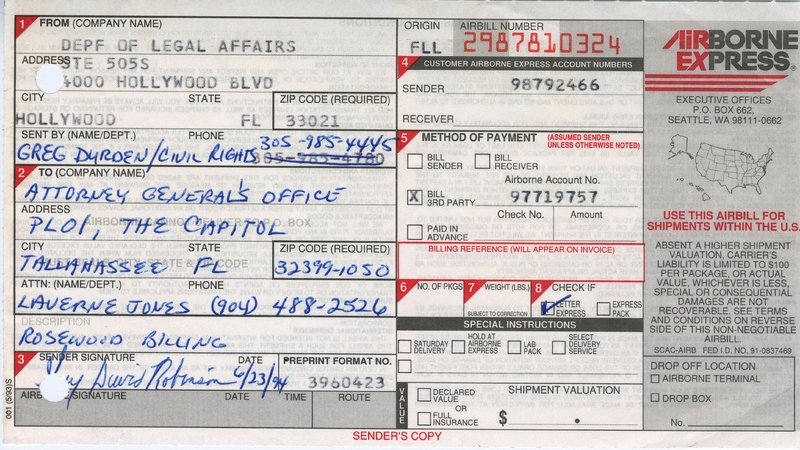 1 FROM (COMPANY NAME)
DEPF OF LEGAL AFFAIRS
ADDRESS
STE 505S
4000 HOLLYWOOD BLVD
CITY STATE ZIP CODE (REQUIRED)
HOLLYWOOD FL 33021
SENT BY (NAME/DEPT.) PHONE
GREG DURDEN/CIVIL RIGHTS 305-985-4445
305-985-4780
2 TO (COMPANY NAME)
ATTORNEY GENERAL'S OFFICE
ADDRESS
PL01, THE CAPITOL
CITY STATE ZIP CODE (REQUIRED)
TALLAHASSEE FL 32399-1050
ATTN: (NAME/DEPT.) PHONE
LAVERNE JONES (904) 488-2526
DESCRIPTION
ROSEWOOD BILLING
3 SENDER SIGNATURE DATE PREPRINT FORMAT NO.
David Robinson 6/23/94 3960423
AIRBORNE SIGNATURE DATE TIME ROUTE
001 (5/93)S
ORIGIN AIRBILL NUMBER
FLL 2987810324
4 CUSTOMER AIRBORNE EXPRESS ACCOUNT NUMBERS
SENDER 98792466
RECEIVER
5 METHOD OF PAYMENT (ASSUMED SENDER UNLESS OTHERWISE NOTED)
BILL SENDER BILL RECEIVER
Airborne Account No.
X BILL 3RD PARTY 97719757
Check No. Amount
PAID IN ADVANCE
BILLING REFERENCE (WILL APPEAR ON INVOICE)
6 NO. OF PKGS 7 WEIGHT (LBS.) 8 CHECK IF
SUBJECT TO CORRECTION
LETTER EXPRESS EXPRESS PACK
SPECIAL INSTRUCTIONS
SATURDAY DELIVERY HOLD AT AIRBORNE EXPRESS LAB PACK SELECT DELIVERY SERVICE
VALUE
DECLARED VALUE SHIPMENT VALUATION
OR
FULL INSURANCE $ .
SENDER'S COPY
AIRBORNE
EXPRESS®
EXECUTIVE OFFICES
P.O. BOX 662,
SEATTLE, WA 98111-0662
USE THIS AIRBILL FOR
SHIPMENTS WITHIN THE U.S.
ABSENT A HIGHER SHIPMENT
VALUATION, CARRIER'S
LIABILITY IS LIMITED TO $100
PER PACKAGE, OR ACTUAL
VALUE, WHICHEVER IS LESS,
SPECIAL OR CONSEQUENTIAL
DAMAGES ARE NOT
RECOVERABLE. SEE TERMS
AND CONDITIONS ON REVERSE
SIDE OF THIS NON-NEGOTIABLE
AIRBILL.
SCAC-AIRB FED I.D. NO. 91-0837469
DROP OFF LOCATION
AIRBORNE TERMINAL
DROP BOX
No.